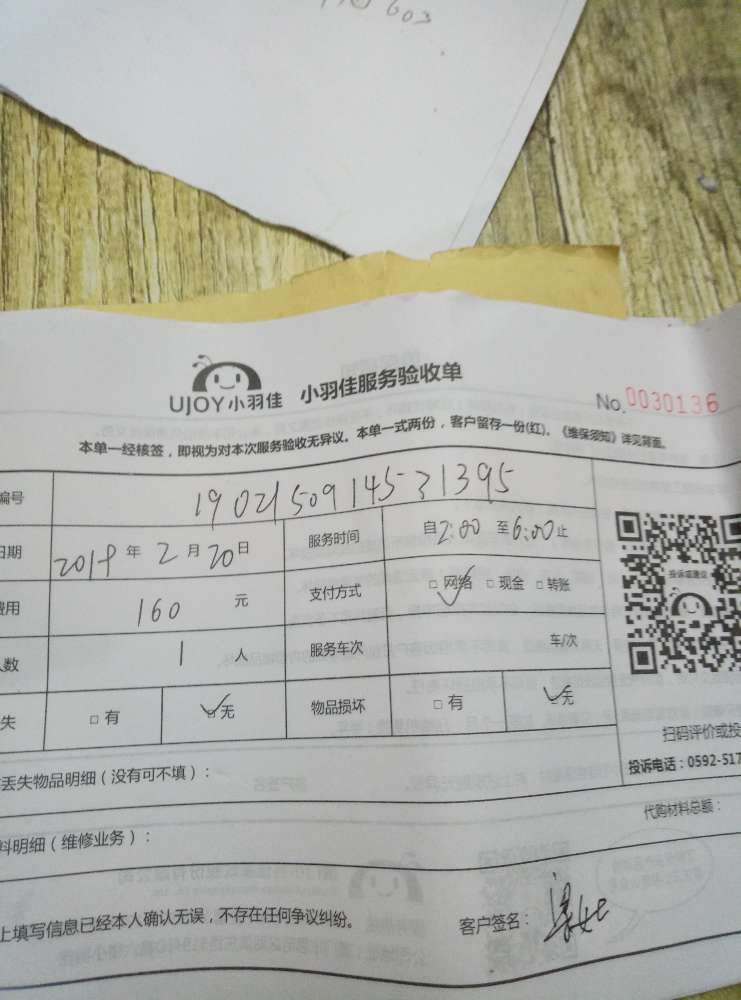 603
UJOY小羽佳 小羽佳服务验收单
No.0030136
本单一经核签，即视为对本次服务验收无异议。本单一式两份，客户留存一份(红)。《维保须知》详见背面。
编号 1902150914531395
日期 2019 年 2 月 20 日 服务时间 自 2:00 至 6:00 止
费用 160 元 支付方式 □ 网络 □ 现金 □ 转账
人数 1 人 服务车次 车/次
失 □ 有 □ 无 物品损坏 □ 有 □ 无
投诉或建议
扫码评价或投
投诉电话：0592-517
丢失物品明细（没有可不填）：
代购材料总额：
料明细（维修业务）：
上填写信息已经本人确认无误，不存在任何争议纠纷。
客户签名：